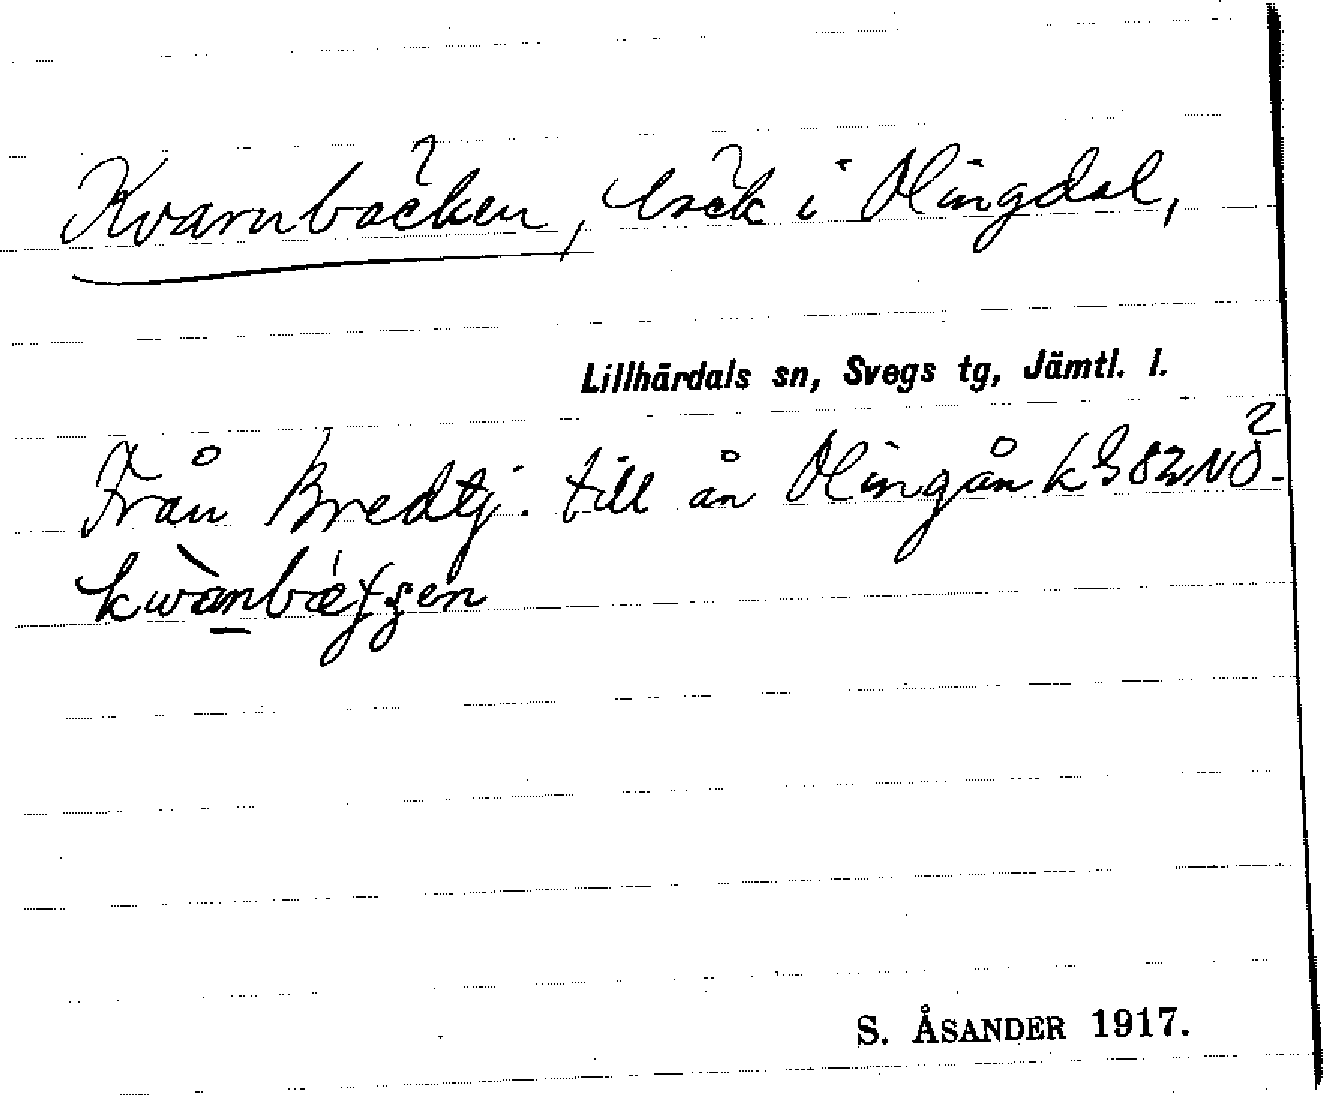 Kvarnbäcken, bäck i Olingdal,
Lillhärdals sn, Svegs tg, Jämtl. l.
Från Bredtj. till ån Olingån k G 82 NÖ
kwànbæ̀ƫʂen
S. ÅSANDER 1917.